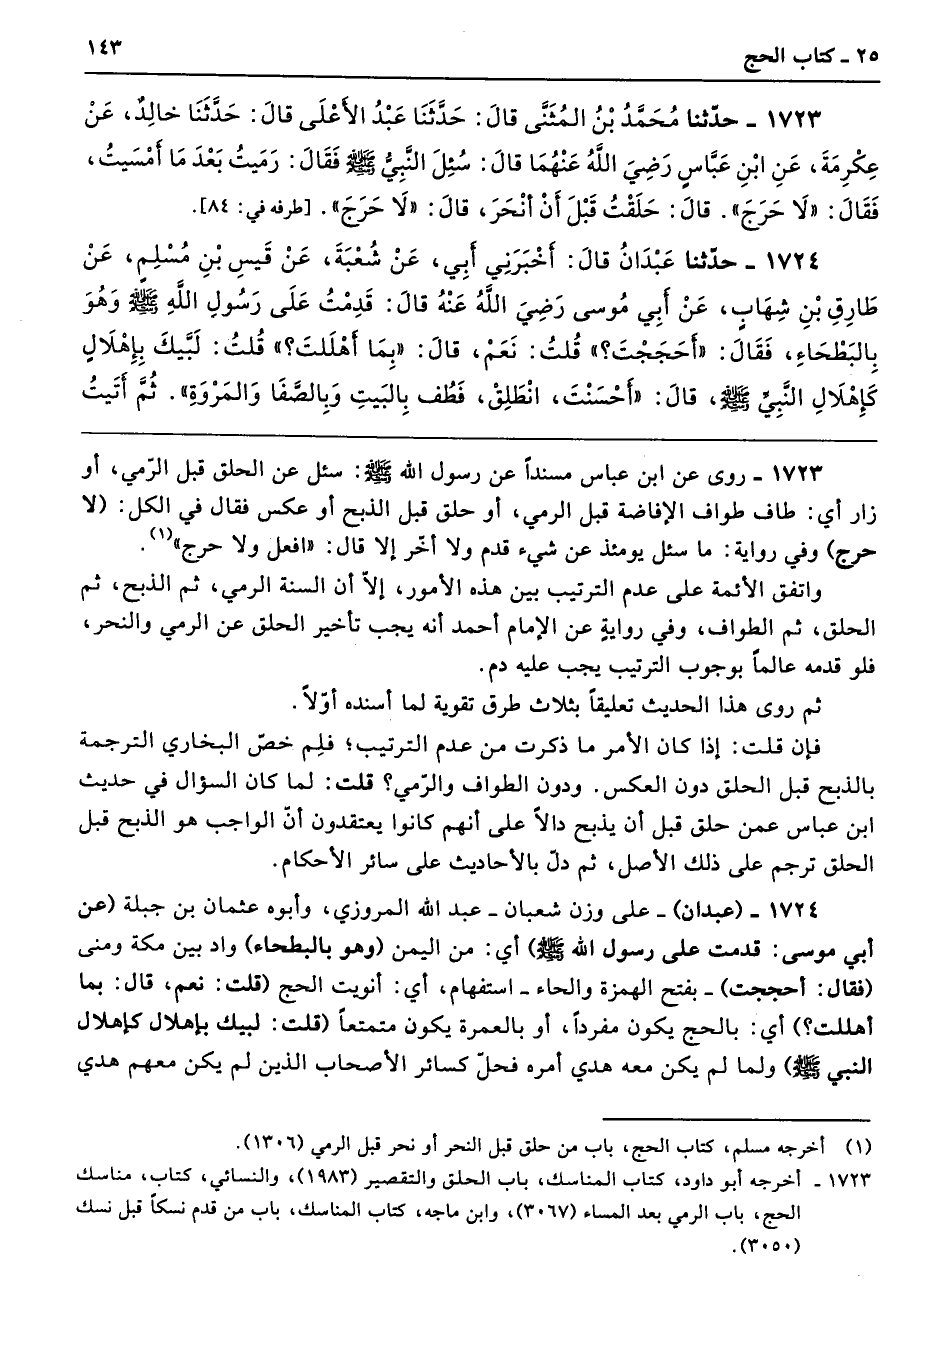 ٢٥ ـ كتاب الحج
١٤٣
١٧٢٣ ـ حدّثنا مُحَمَّدُ بْنُ المُثَنَّى قالَ: حَدَّثَنَا عَبْدُ الأَعْلَى قالَ: حَدَّثَنَا خالِدٌ، عَنْ
عِكْرِمَةَ، عَنِ ابْنِ عَبَّاسٍ رَضِيَ اللَّهُ عَنْهُمَا قالَ: سُئِلَ النَّبِيُّ ﷺ فَقَالَ: رَمَيتُ بَعْدَ مَا أَمْسَيتُ،
فَقَالَ: «لَا حَرَجَ». قالَ: حَلَقْتُ قَبْلَ أَنْ أَنْحَرَ، قالَ: «لَا حَرَجَ». [طرفه في: ٨٤].
١٧٢٤ ـ حدّثنا عَبْدَانُ قالَ: أَخْبَرَنِي أَبِي، عَنْ شُعْبَةَ، عَنْ قَيسِ بْنِ مُسْلِمٍ، عَنْ
طَارِقِ بْنِ شِهَابٍ، عَنْ أَبِي مُوسى رَضِيَ اللَّهُ عَنْهُ قالَ: قَدِمْتُ عَلَى رَسُولِ اللَّهِ ﷺ وَهُوَ
بِالبَطْحَاءِ، فَقَالَ: «أَحَجَجْتَ؟» قُلتُ: نَعَمْ، قالَ: «بِمَا أَهْلَلتَ؟» قُلتُ: لَبَّيكَ بِإِهْلَالٍ
كَإِهْلَالِ النَّبِيِّ ﷺ، قالَ: «أَحْسَنْتَ، انْطَلِقْ، فَطُف بِالبَيتِ وَبِالصَّفَا وَالمَرْوَةِ». ثُمَّ أَتَيتُ
١٧٢٣ ـ روى عن ابن عباس مسنداً عن رسول الله ﷺ: سئل عن الحلق قبل الرّمي، أو
زار أي: طاف طواف الإفاضة قبل الرمي، أو حلق قبل الذبح أو عكس فقال في الكل: (لا
حرج) وفي رواية: ما سئل يومئذ عن شيء قدم ولا أخّر إلا قال: «افعل ولا حرج»(١).
واتفق الأئمة على عدم الترتيب بين هذه الأمور، إلاّ أن السنة الرمي، ثم الذبح، ثم
الحلق، ثم الطواف، وفي روايةٍ عن الإمام أحمد أنه يجب تأخير الحلق عن الرمي والنحر،
فلو قدمه عالماً بوجوب الترتيب يجب عليه دم.
ثم روى هذا الحديث تعليقاً بثلاث طرق تقوية لما أسنده أوّلاً.
فإن قلت: إذا كان الأمر ما ذكرت من عدم الترتيب؛ فلِم خصّ البخاري الترجمة
بالذبح قبل الحلق دون العكس. ودون الطواف والرّمي؟ قلت: لما كان السؤال في حديث
ابن عباس عمن حلق قبل أن يذبح دالاً على أنهم كانوا يعتقدون أنّ الواجب هو الذبح قبل
الحلق ترجم على ذلك الأصل، ثم دلّ بالأحاديث على سائر الأحكام.
١٧٢٤ ـ (عبدان) ـ على وزن شعبان ـ عبد الله المروزي، وأبوه عثمان بن جبلة (عن
أبي موسى: قدمت على رسول الله ﷺ) أي: من اليمن (وهو بالبطحاء) واد بين مكة ومنى
(فقال: أحججت) ـ بفتح الهمزة والحاء ـ استفهام، أي: أنويت الحج (قلت: نعم، قال: بما
أهللت؟) أي: بالحج يكون مفرداً، أو بالعمرة يكون متمتعاً (قلت: لبيك بإهلال كإهلال
النبي ﷺ) ولما لم يكن معه هدي أمره فحلّ كسائر الأصحاب الذين لم يكن معهم هدي
(١) أخرجه مسلم، كتاب الحج، باب من حلق قبل النحر أو نحر قبل الرمي (١٣٠٦).
١٧٢٣ ـ أخرجه أبو داود، كتاب المناسك، باب الحلق والتقصير (١٩٨٣)، والنسائي، كتاب، مناسك
الحج، باب الرمي بعد المساء (٣٠٦٧)، وابن ماجه، كتاب المناسك، باب من قدم نسكاً قبل نسك
(٣٠٥٠).